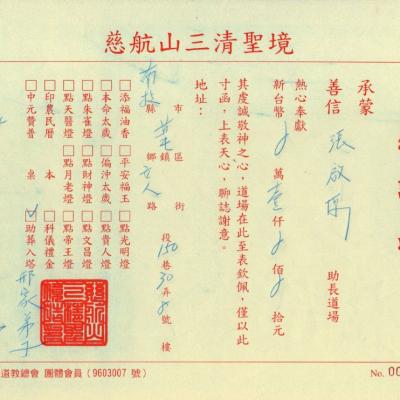 慈航山三清聖境
承蒙
善信 張啟 助長道場
熱心奉獻
新台幣 萬壹仟 佰 拾元
其虔誠敬神之心，道場在此至表欽佩，僅以此
寸函，上表天心，聊誌謝意。
地址：
南投 縣市 鄉鎮區 立人 路街 段 150 巷 30 弄 8 號 樓
□添福油香 □平安福玉 □點光明燈
□本命太歲 □偏沖太歲 □點貴人燈
□點朱雀燈 □點財神燈 □點文昌燈
□點天醫燈 □點月老燈 □點帝王燈
□印農民曆 本 □科儀禮金
□中元贊普 桌 ✓助葬入塔
邢家弟子
道教總會 團體會員（9603007 號）
No. 00